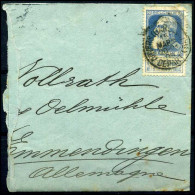 Vollrath
& Oelmühle
Emmendingen
Allemagne